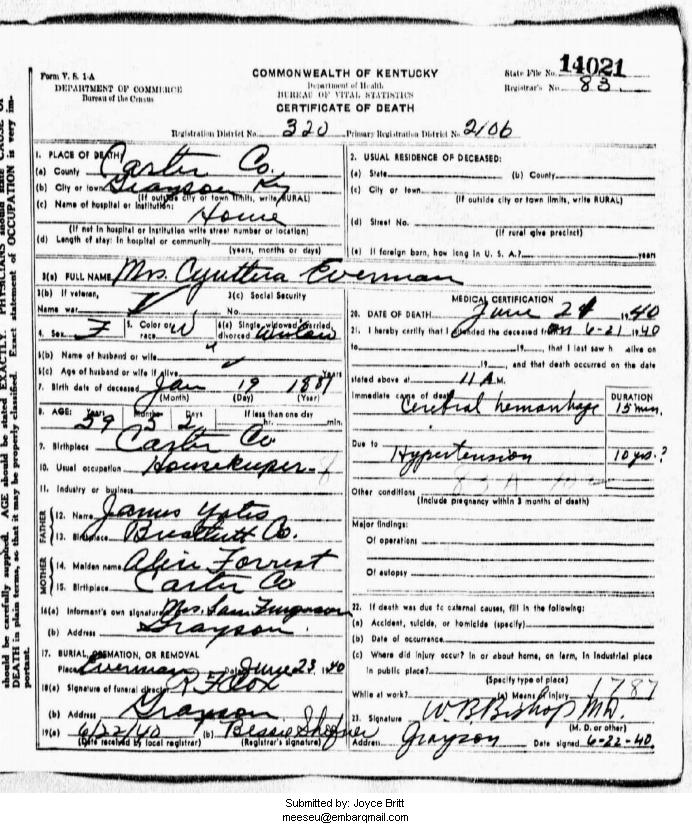 should be carefully supplied. AGE should be stated EXACTLY. PHYSICIANS should state CAUSE OF
DEATH in plain terms, so that it may be properly classified. Exact statement of OCCUPATION is very im-
portant.
Form V. S. 1-A
DEPARTMENT OF COMMERCE
Bureau of the Census
COMMONWEALTH OF KENTUCKY
Department of Health
BUREAU OF VITAL STATISTICS
CERTIFICATE OF DEATH
State File No. 14021
Registrar's No. 83
Registration District No. 320 Primary Registration District No. 2106
1. PLACE OF DEATH
(a) County Carter Co.
(b) City or town Grayson Ky
(If outside city or town limits, write RURAL)
(c) Name of hospital or institution:
Home
(If not in hospital or institution write street number or location)
(d) Length of stay: In hospital or community
(years, months or days)
2. USUAL RESIDENCE OF DECEASED:
(a) State (b) County
(c) City or town
(If outside city or town limits, write RURAL)
(d) Street No.
(If rural give precinct)
(e) If foreign born, how long in U. S. A.? years
3(a) FULL NAME Mrs. Cynthia Everman
3(b) If veteran, 3(c) Social Security
Name war No.
4. Sex F 5. Color or race W 6(a) Single, widowed, married, divorced widow
6(b) Name of husband or wife
6(c) Age of husband or wife if alive Years
7. Birth date of deceased Jan 19 1881
(Month) (Day) (Year)
8. AGE: Years Months Days If less than one day
59 5 2 hr. min.
9. Birthplace Carter Co
10. Usual occupation Housekeeper
11. Industry or business
FATHER
12. Name James Yates
13. Birthplace Co.
MOTHER
14. Maiden name Forrest
15. Birthplace Carter Co
16(a) Informant's own signature Mrs. Sam Ferguson
(b) Address Grayson
17. BURIAL, CREMATION, OR REMOVAL
Place Everman Date June 23 1940
18(a) Signature of funeral director Cox
(b) Address Grayson
19(a) 6/22/40 (b) Bessie
(Date received by local registrar) (Registrar's signature)
MEDICAL CERTIFICATION
20. DATE OF DEATH June 21 1940
21. I hereby certify that I attended the deceased from 6-21 1940
to 19 , that I last saw h alive on
19 , and that death occurred on the date
stated above at 11 A M.
Immediate cause of death DURATION
Cerebral hemorrhage 15 min.
Due to Hypertension 10 yrs.?
Other conditions
(Include pregnancy within 3 months of death)
Major findings:
Of operations
Of autopsy
22. If death was due to external causes, fill in the following:
(a) Accident, suicide, or homicide (specify)
(b) Date of occurrence
(c) Where did injury occur? In or about home, on farm, in industrial place
in public place?
(Specify type of place)
While at work? (e) Means of injury 1787
23. Signature W. B. Bishop MD.
(M. D. or other)
Address Grayson Date signed 6-22-40.
Submitted by: Joyce Britt
meeseu@embarqmail.com